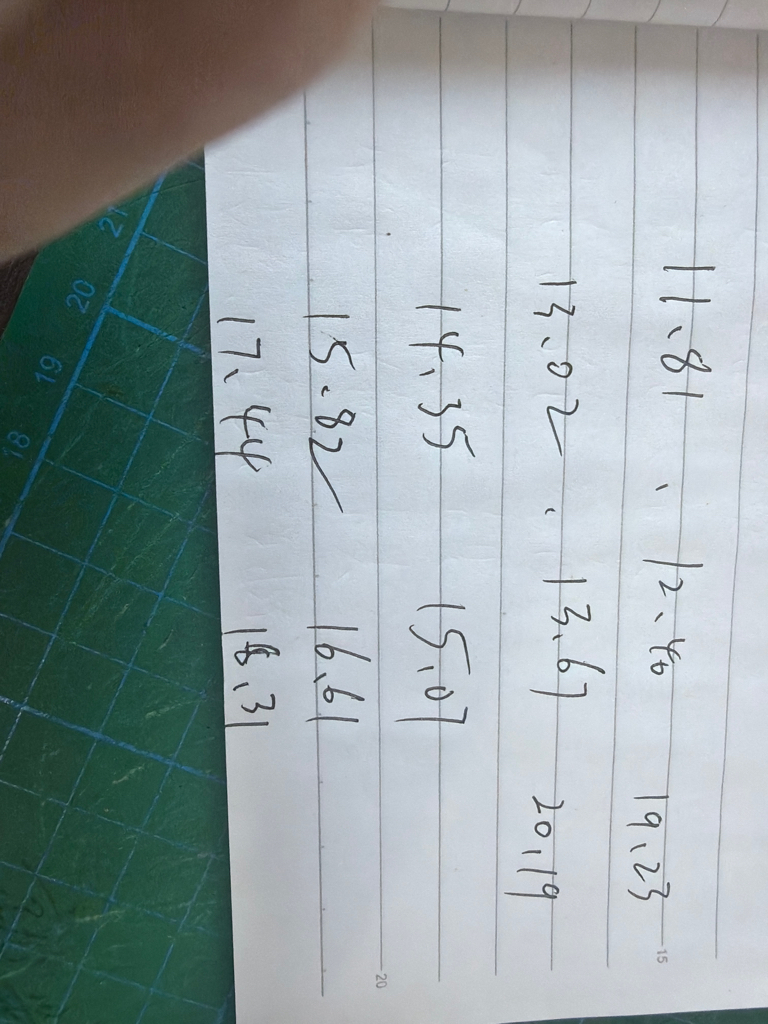 11.81 、 12.40 19.23
15
13.02 、 13.67 20.19
14.35 15.07
20
15.82 16.61
17.44 18.31
21 20 19 18